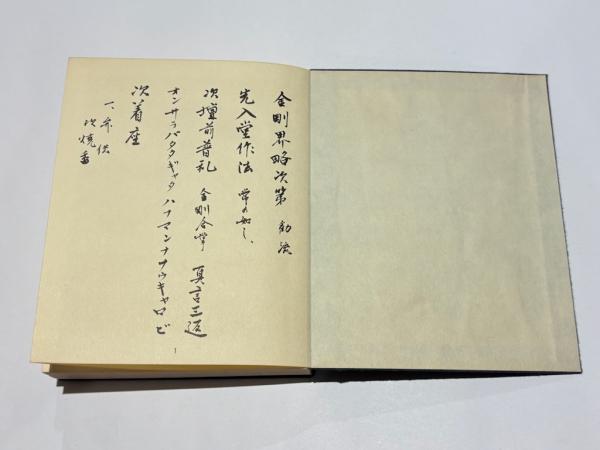 金剛界略次第 幼流
先入堂作法 常の如し、
次壇前普礼 金剛合掌 真言三返
オンサラバタタギャタハナマンナナウキャロビ
次着座
一、弁供
次焼香
1